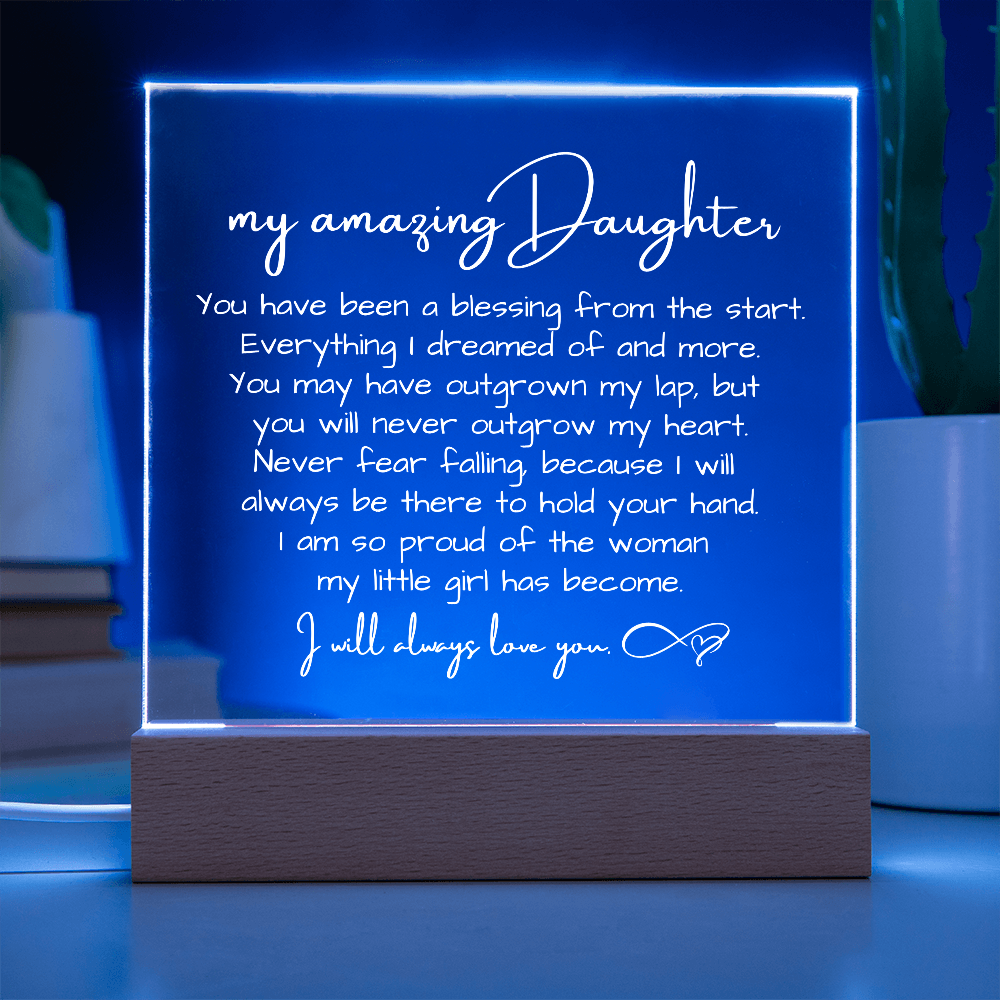 my amazing Daughter
You have been a blessing from the start.
Everything I dreamed of and more.
You may have outgrown my lap, but
you will never outgrow my heart.
Never fear falling, because I will
always be there to hold your hand.
I am so proud of the woman
my little girl has become.
I will always love you.